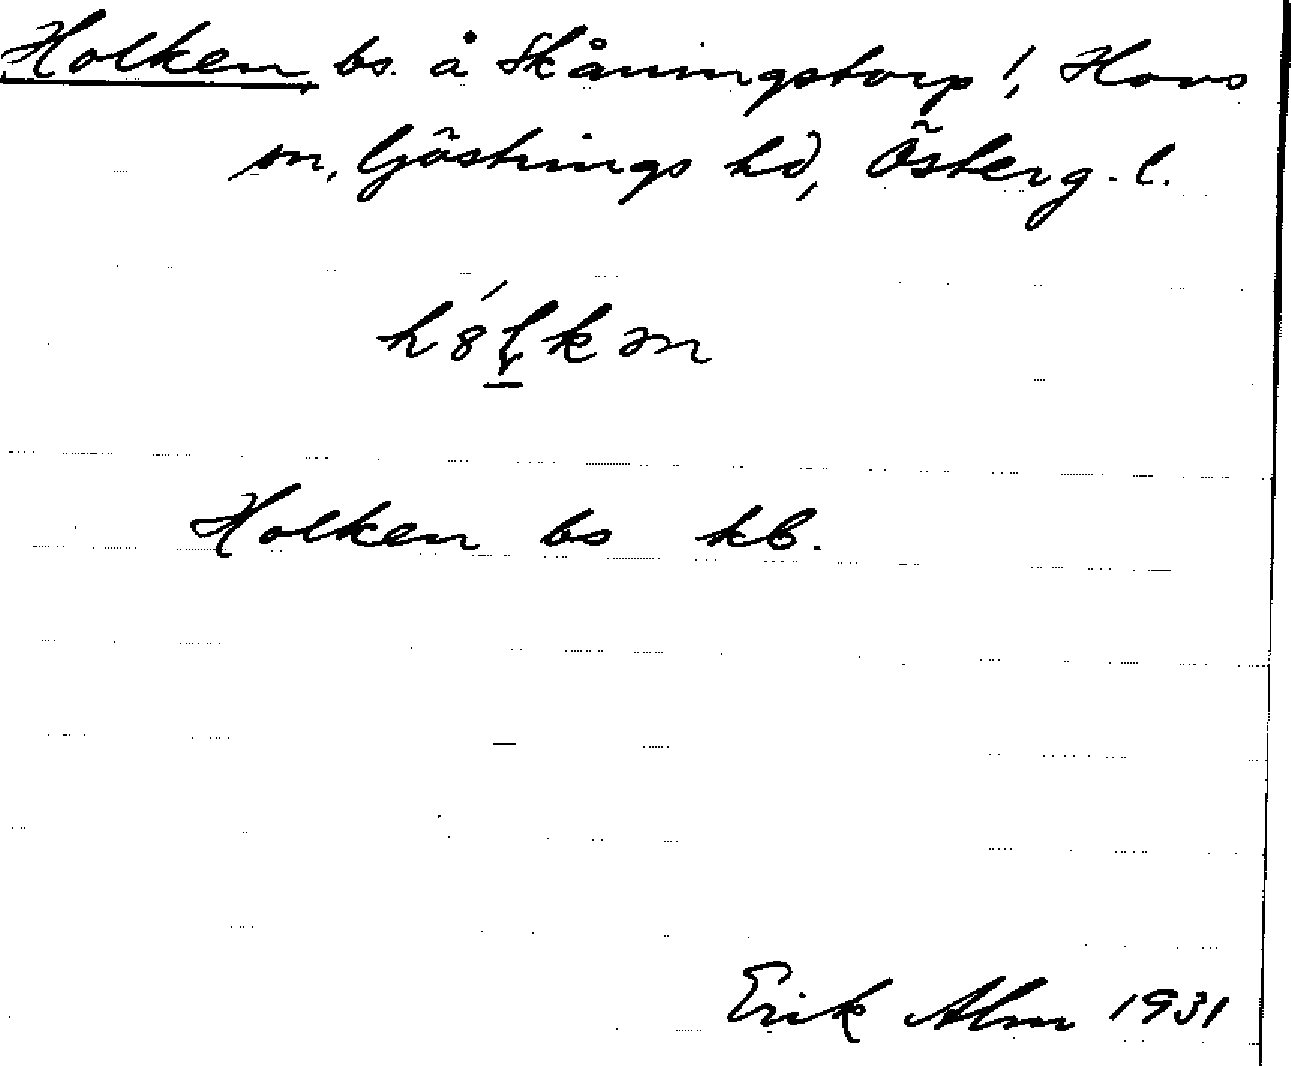 Holken, bs. å Skåningstorp!, Hovs
sn, Göstrings hd, Österg. l.
Holken bs kb.
Erik Alm 1931